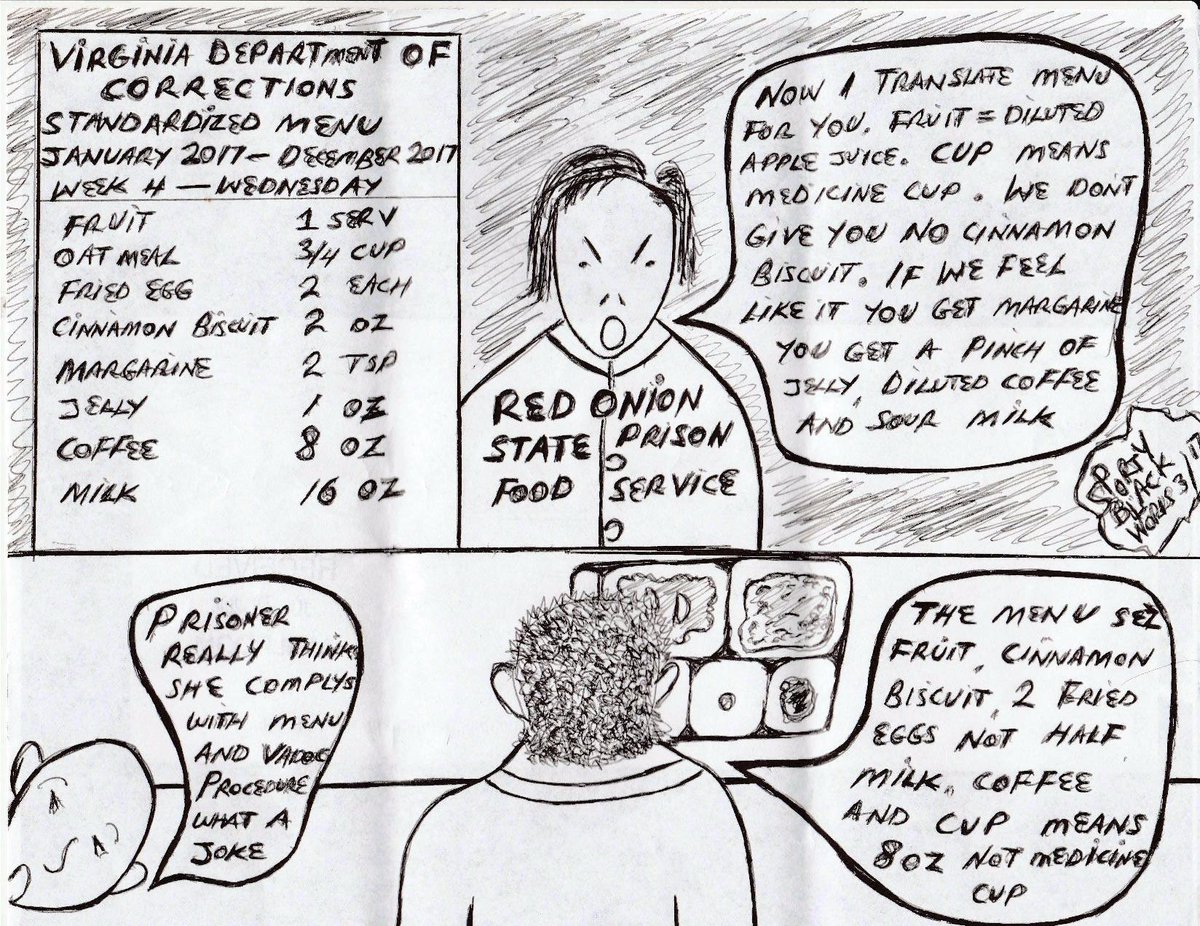 VIRGINIA DEPARTMENT OF
CORRECTIONS
STANDARDIZED MENU
JANUARY 2017 — DECEMBER 2017
WEEK 4 — WEDNESDAY
FRUIT 1 SERV
OATMEAL 3/4 CUP
FRIED EGG 2 EACH
CINNAMON BISCUIT 2 OZ
MARGARINE 2 TSP
JELLY 1 OZ
COFFEE 8 OZ
MILK 16 OZ
RED ONION
STATE PRISON
FOOD SERVICE
NOW I TRANSLATE MENU
FOR YOU. FRUIT = DILUTED
APPLE JUICE. CUP MEANS
MEDICINE CUP. WE DONT
GIVE YOU NO CINNAMON
BISCUIT. IF WE FEEL
LIKE IT YOU GET MARGARINE
YOU GET A PINCH OF
JELLY, DILUTED COFFEE
AND SOUR MILK
SPORTY
BLACK
WORKS 3/17
PRISONER
REALLY THINKS
SHE COMPLYS
WITH MENU
AND VADOC
PROCEDURE
WHAT A
JOKE
THE MENU SEZ
FRUIT, CINNAMON
BISCUIT, 2 FRIED
EGGS NOT HALF
MILK, COFFEE
AND CUP MEANS
8 OZ NOT MEDICINE
CUP